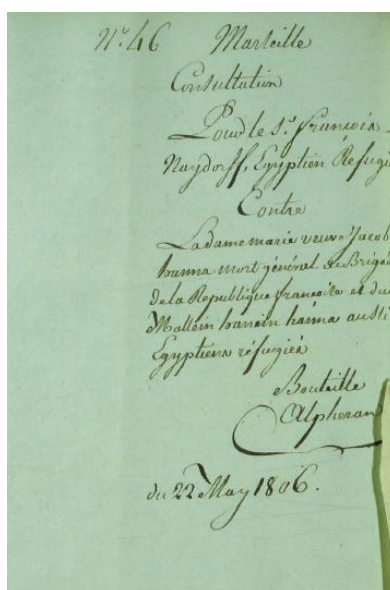 N.º 46 Marseille
Consultation
Pour le S.r françois
Naydorff, Egyptien Refugi
Contre
La dame marie veuve Jacob
hanna mort général de Brigad
de la Republique françoise et du
Mallein hanein hanna aussi
Egyptiens réfugiés
Bouteille
Alpheran
du 22 May 1806.